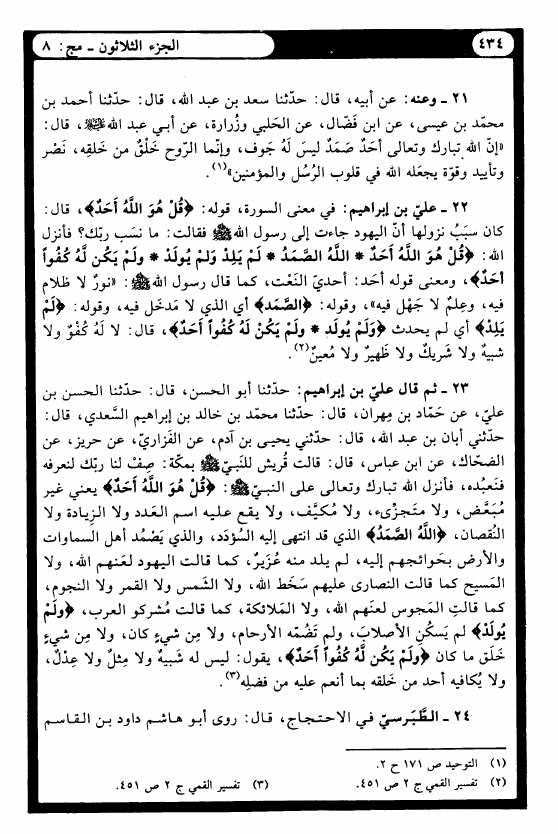 ٤٣٤
الجزء الثلاثون ـ مج: ٨
٢١ ـ وعنه: عن أبيه، قال: حدّثنا سعد بن عبد الله، قال: حدّثنا أحمد بن
محمّد بن عيسى، عن ابن فَضّال، عن الحَلبي وزُرارة، عن أبي عبد الله ﷺ، قال:
«إنّ الله تبارك وتعالى أحَدٌ صَمَدٌ ليسَ لَهُ جَوف، وإنّما الرّوح خَلْقٌ من خَلقِه، نَصْر
وتأييد وقوّة يجعَله الله في قلوب الرُسُل والمؤمنين»(١).
٢٢ ـ عليّ بن إبراهيم: في معنى السورة، قوله: ﴿قُلْ هُوَ اللَّهُ أَحَدٌ﴾، قال:
كان سبَبُ نزولها أنّ اليهود جاءت إلى رسول الله ﷺ فقالت: ما نسَب ربّك؟ فأنزل
الله: ﴿قُلْ هُوَ اللَّهُ أَحَدٌ * اللَّهُ الصَّمَدُ * لَمْ يَلِدْ وَلمْ يُولَدْ * ولَمْ يَكُن لَّهُ كُفُواً
أحَدٌ﴾، ومعنى قوله أحَد: أحديّ النَعْت، كما قال رسول الله ﷺ: «نورٌ لا ظلام
فيه، وعِلمٌ لا جَهْل فيه»، وقوله: ﴿الصَّمَد﴾ أي الذي لا مَدخَل فيه، وقوله: ﴿لَمْ
يَلِدْ﴾ أي لم يحدث ﴿وَلَمْ يُولَد * ولَمْ يَكُنْ لَهُ كُفُواً أَحَدٌ﴾، قال: لا لَهُ كُفْوٌ ولا
شبيهٌ ولا شريكٌ ولا ظَهيرٌ ولا مُعينٌ(٢).
٢٣ ـ ثم قال عليّ بن إبراهيم: حدّثنا أبو الحسن، قال: حدّثنا الحسن بن
عليّ، عن حَمّاد بن مِهران، قال: حدّثنا محمّد بن خالد بن إبراهيم السَّعدي، قال:
حدّثني أبان بن عبد الله، قال: حدّثني يحيى بن آدم، عن الفَزاريّ، عن حريز، عن
الضحّاك، عن ابن عباس، قال: قالت قُريش للنَبيّ ﷺ بمكّة: صِفْ لنا ربّك لنعرفه
فنَعبُده، فأنزل الله تبارك وتعالى على النبيّ ﷺ: ﴿قُلْ هُوَ اللَّهُ أَحَدٌ﴾ يعني غير
مُبَعَّض، ولا متَجزّىء، ولا مُكيَّف، ولا يقع عليه اسم العدد ولا الزيادة ولا
النُقصان، ﴿اللَّهُ الصَّمَدُ﴾ الذي قد انتهى إليه السُؤدَد، والذي يَصْمُد أهل السماوات
والأرض بحَوائجهم إليه، لم يلد منه عُزَيرٌ، كما قالت اليهود لعَنهم الله، ولا
المَسيح كما قالت النصارى عليهم سَخَط الله، ولا الشَمس ولا القمر ولا النجوم،
كما قالتِ المَجوس لعنَهم الله، ولا المَلائكة، كما قالت مُشركو العرب، ﴿ولَمْ
يُولَدْ﴾ لم يَسكُنِ الأصلابَ، ولم تَضُمّه الأرحام، ولا مِن شيءٍ كان، ولا مِن شيءٍ
خَلَق ما كان ﴿ولَمْ يَكُن لَّهُ كُفُواً أَحَدٌ﴾، يقول: ليس له شَبيهٌ ولا مِثلٌ ولا عِدْلٌ،
ولا يُكافيه أحد من خَلقه بما أنعم عليه من فضلِه(٣).
٢٤ ـ الطَّبَرسيّ في الاحتجاج، قال: روى أبو هاشم داود بن القاسم
(١) التوحيد ص ١٧١ ح ٢.
(٢) تفسير القمي ج ٢ ص ٤٥١. (٣) تفسير القمي ج ٢ ص ٤٥١.